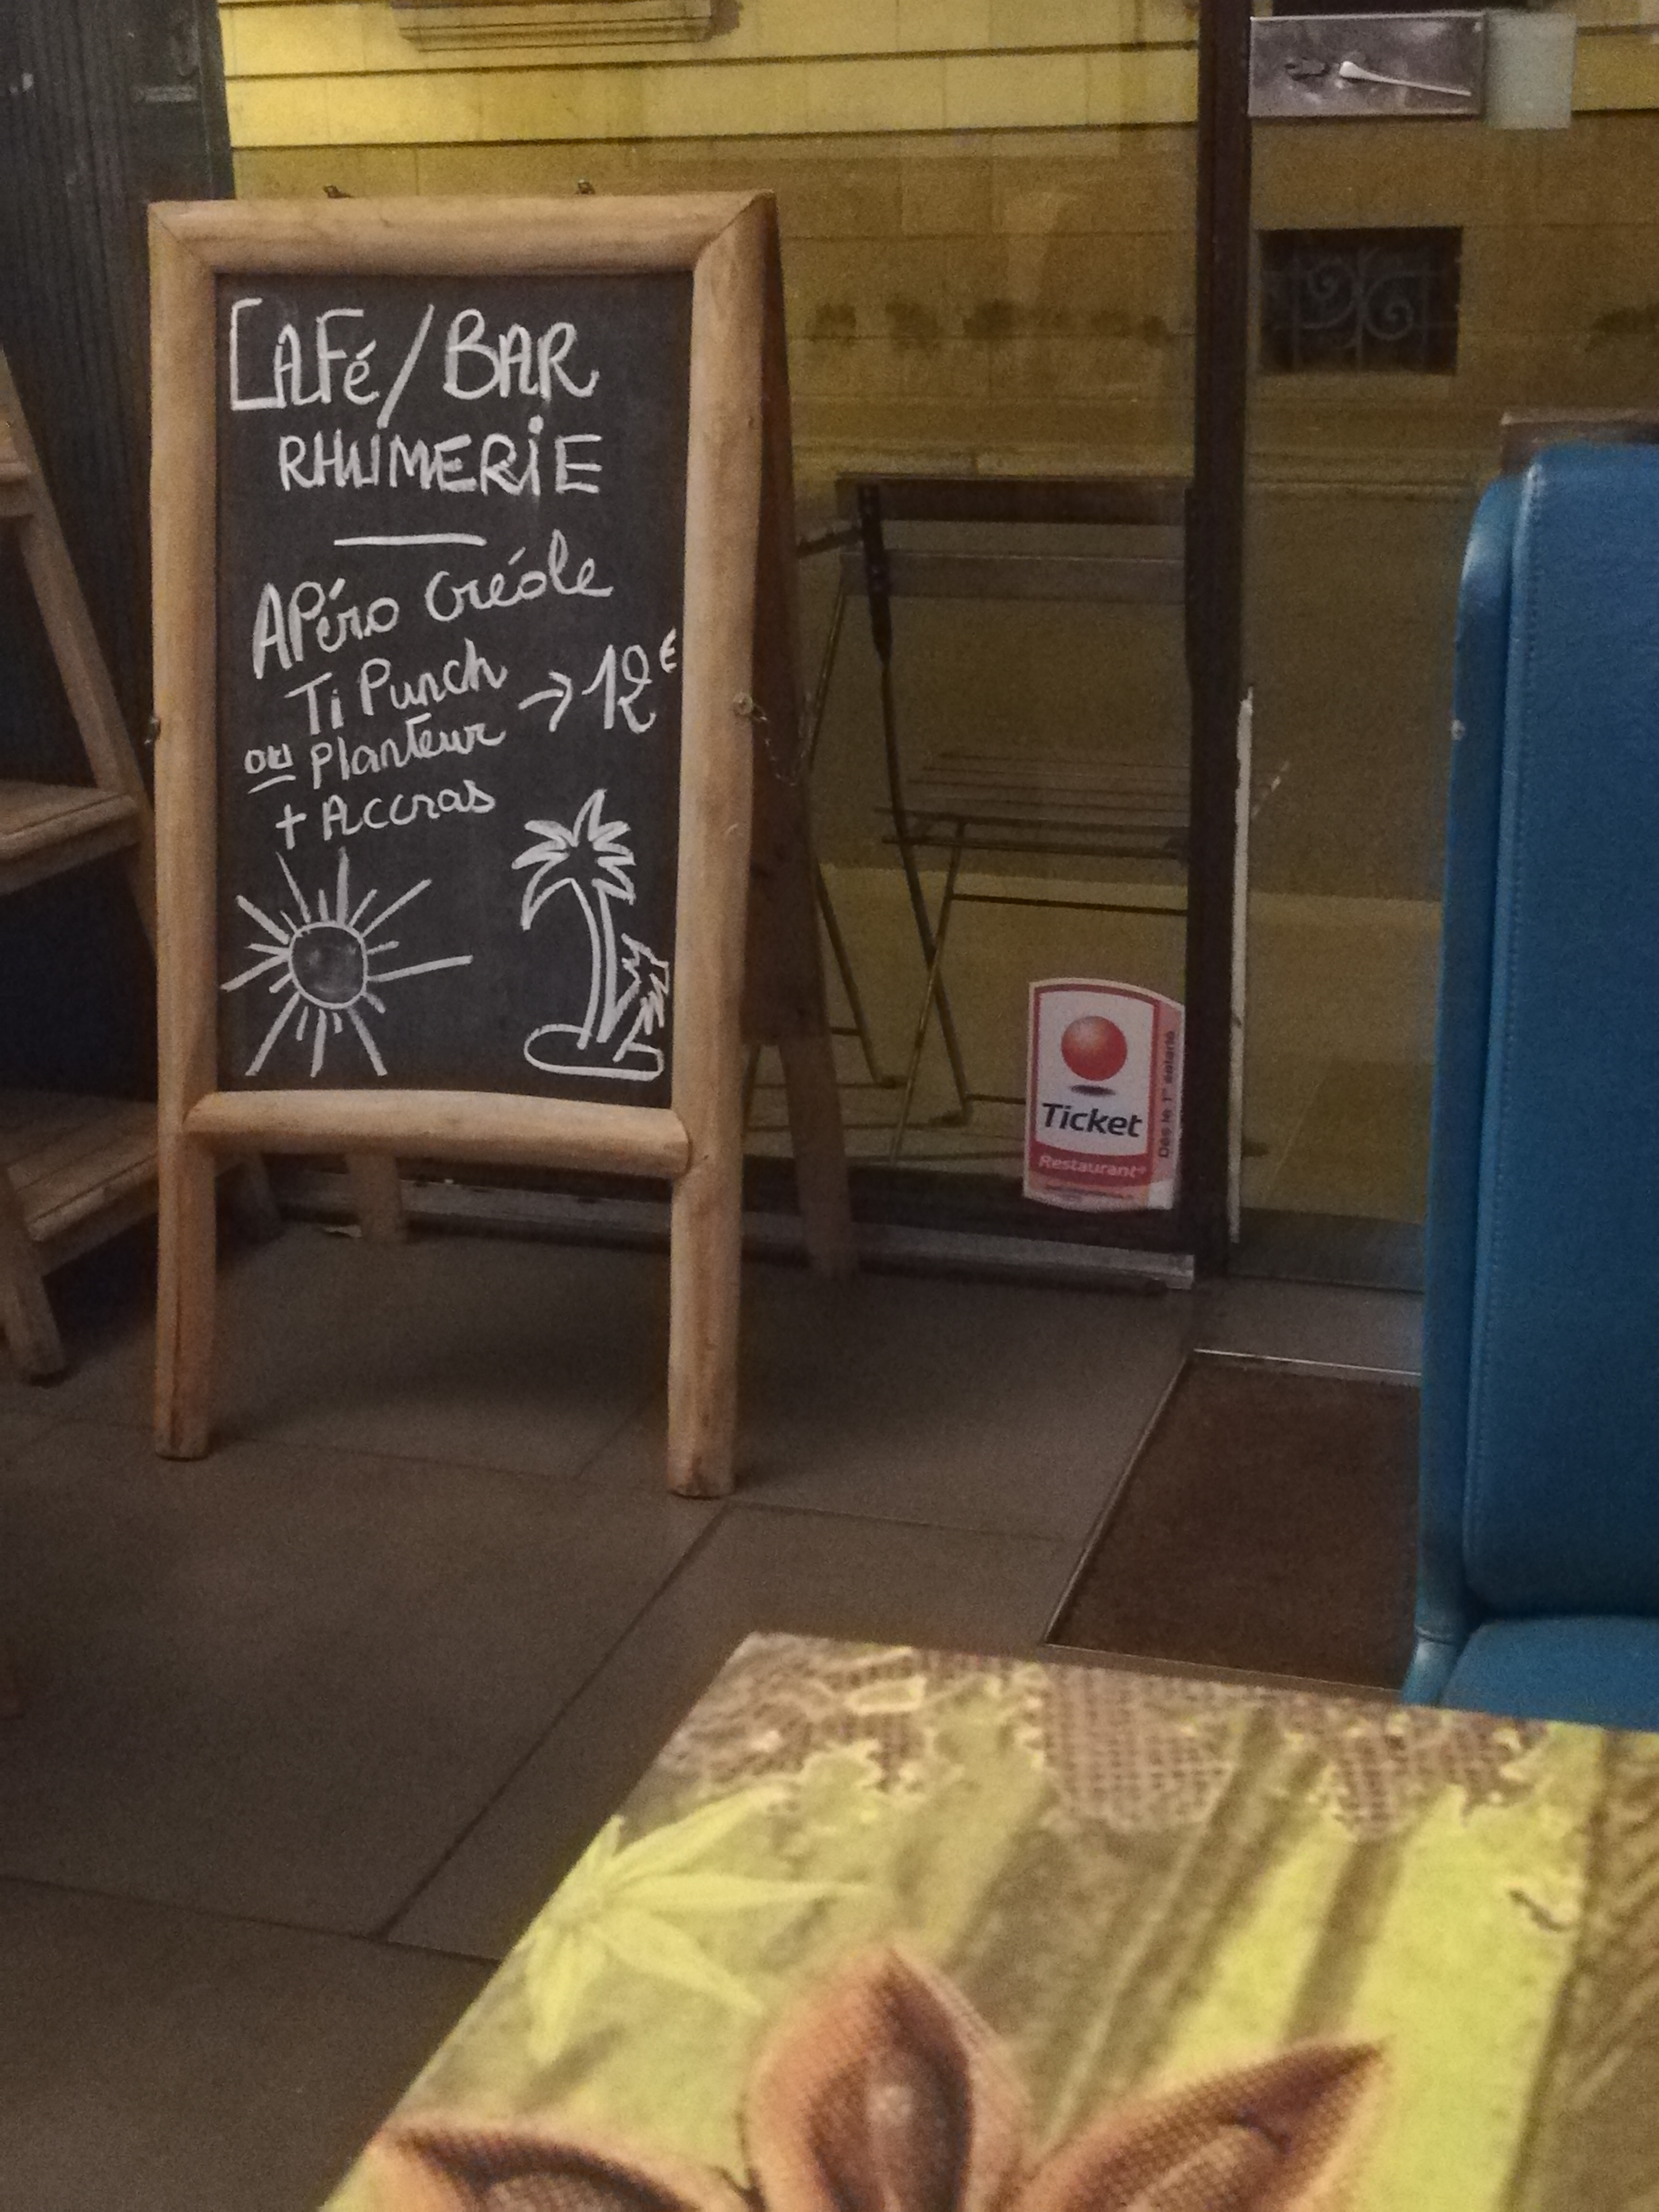 CAFé/BAR
RHUMERiE
APéro Créole
Ti Punch
ou Planteur → 12€
+ Accras
Ticket
Restaurant®
Dès le 1er salarié